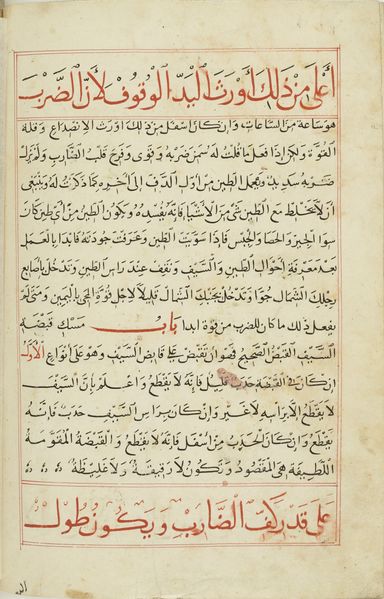 أعلى من ذلك أورث اليد الوقوف لأن الضرب
هو ساعة من الساعات وإن كان أسفل من ذلك أورث الانصداع وقلة
القوة ولكن إذا فعل ما قلت له سمن ضربه وقوى وفرح قلب الضارب ولم تزل
ضربه سديد ويعمل الطين من أول الدف إلى آخره كما ذكرت له وينبغي
أن لا يختلط مع الطين شيء من الأشيا فإنه يفسده ويكون الطين من أي طين كان
سوا الجير والحصا والجبس فإذا سويت الطين وعرفت جودته فابدا بالعمل
بعد معرفة أحوال الطين والسيف وتقف عند راس الطين وتدخل أصابع
رجلك الشمال جوا وتدخل بجنبك الشمال قليلا لأجل قوة اليمين ومتى لم
يفعل ذلك ما كان للضرب من قوة ابدا باب مسك قبضة
السيف القبض الصحيح فهو أن تقبض على قايض السيف وهو على أنواع الأول
إن كان في القبضة حدب قليل فإنه لا يقطع واعلم بأن السيف
لا يقطع إلا براسه لا غير وإن كان براس السيف حدب فإنه
يقطع وإن كان الحدب من أسفل فإنه لا يقطع والقبضة المقومة
اللطيفة هي المقصود وتكون لا رقيقة ولا غليظة
على قدر كف الضارب ويكون طول